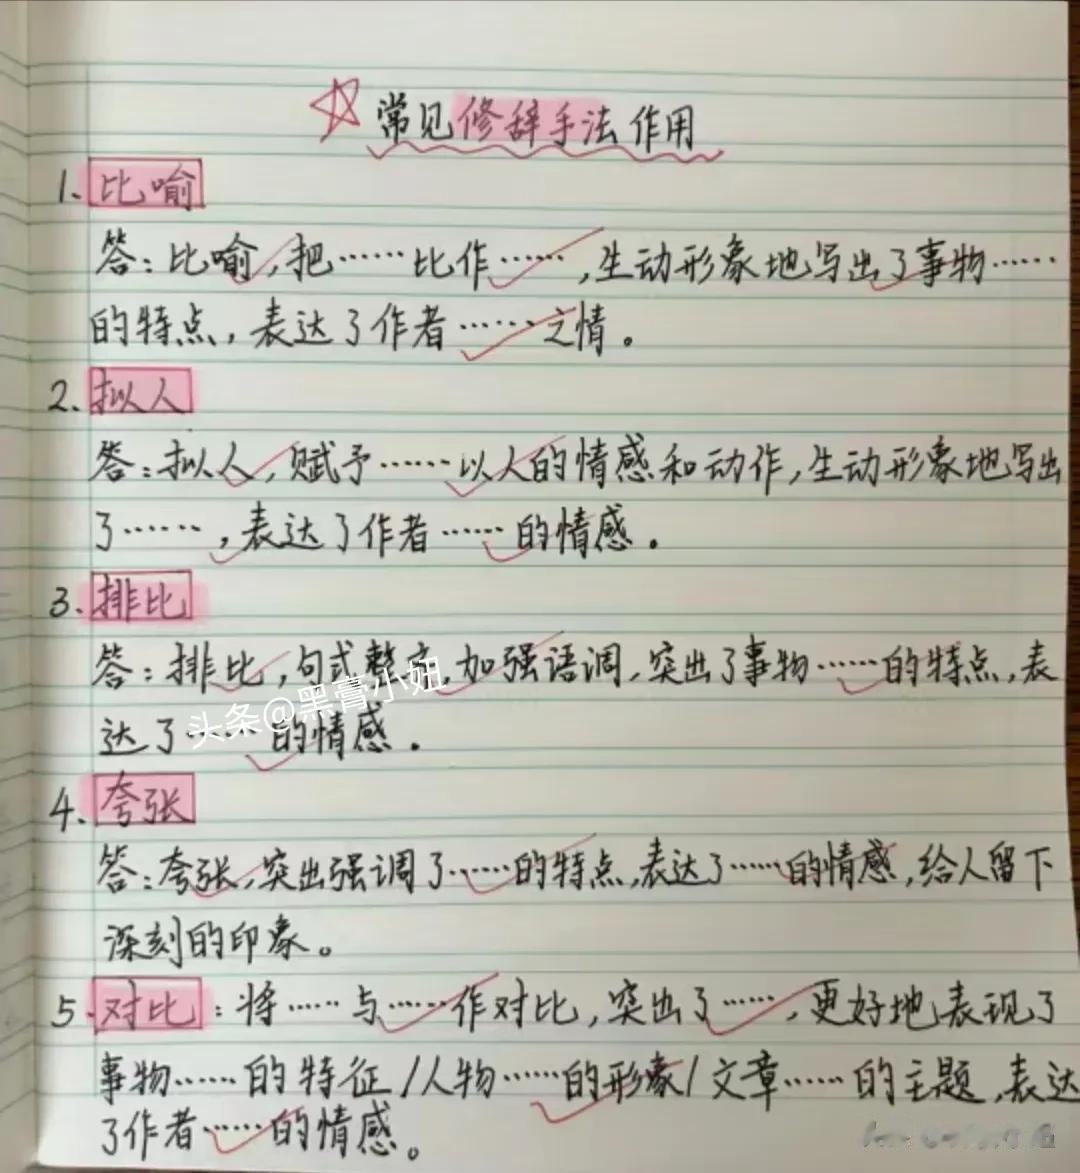 常见修辞手法作用
1. 比喻
答：比喻，把……比作……，生动形象地写出了事物……
的特点，表达了作者……之情。
2. 拟人
答：拟人，赋予……以人的情感和动作，生动形象地写出
了……，表达了作者……的情感。
3. 排比
答：排比，句式整齐，加强语调，突出了事物……的特点，表
达了……的情感。
头条@黑膏小妞
4. 夸张
答：夸张，突出强调了……的特点，表达了……的情感，给人留下
深刻的印象。
5. 对比：将……与……作对比，突出了……，更好地表现了
事物……的特征/人物……的形象/文章……的主题，表达
了作者……的情感。